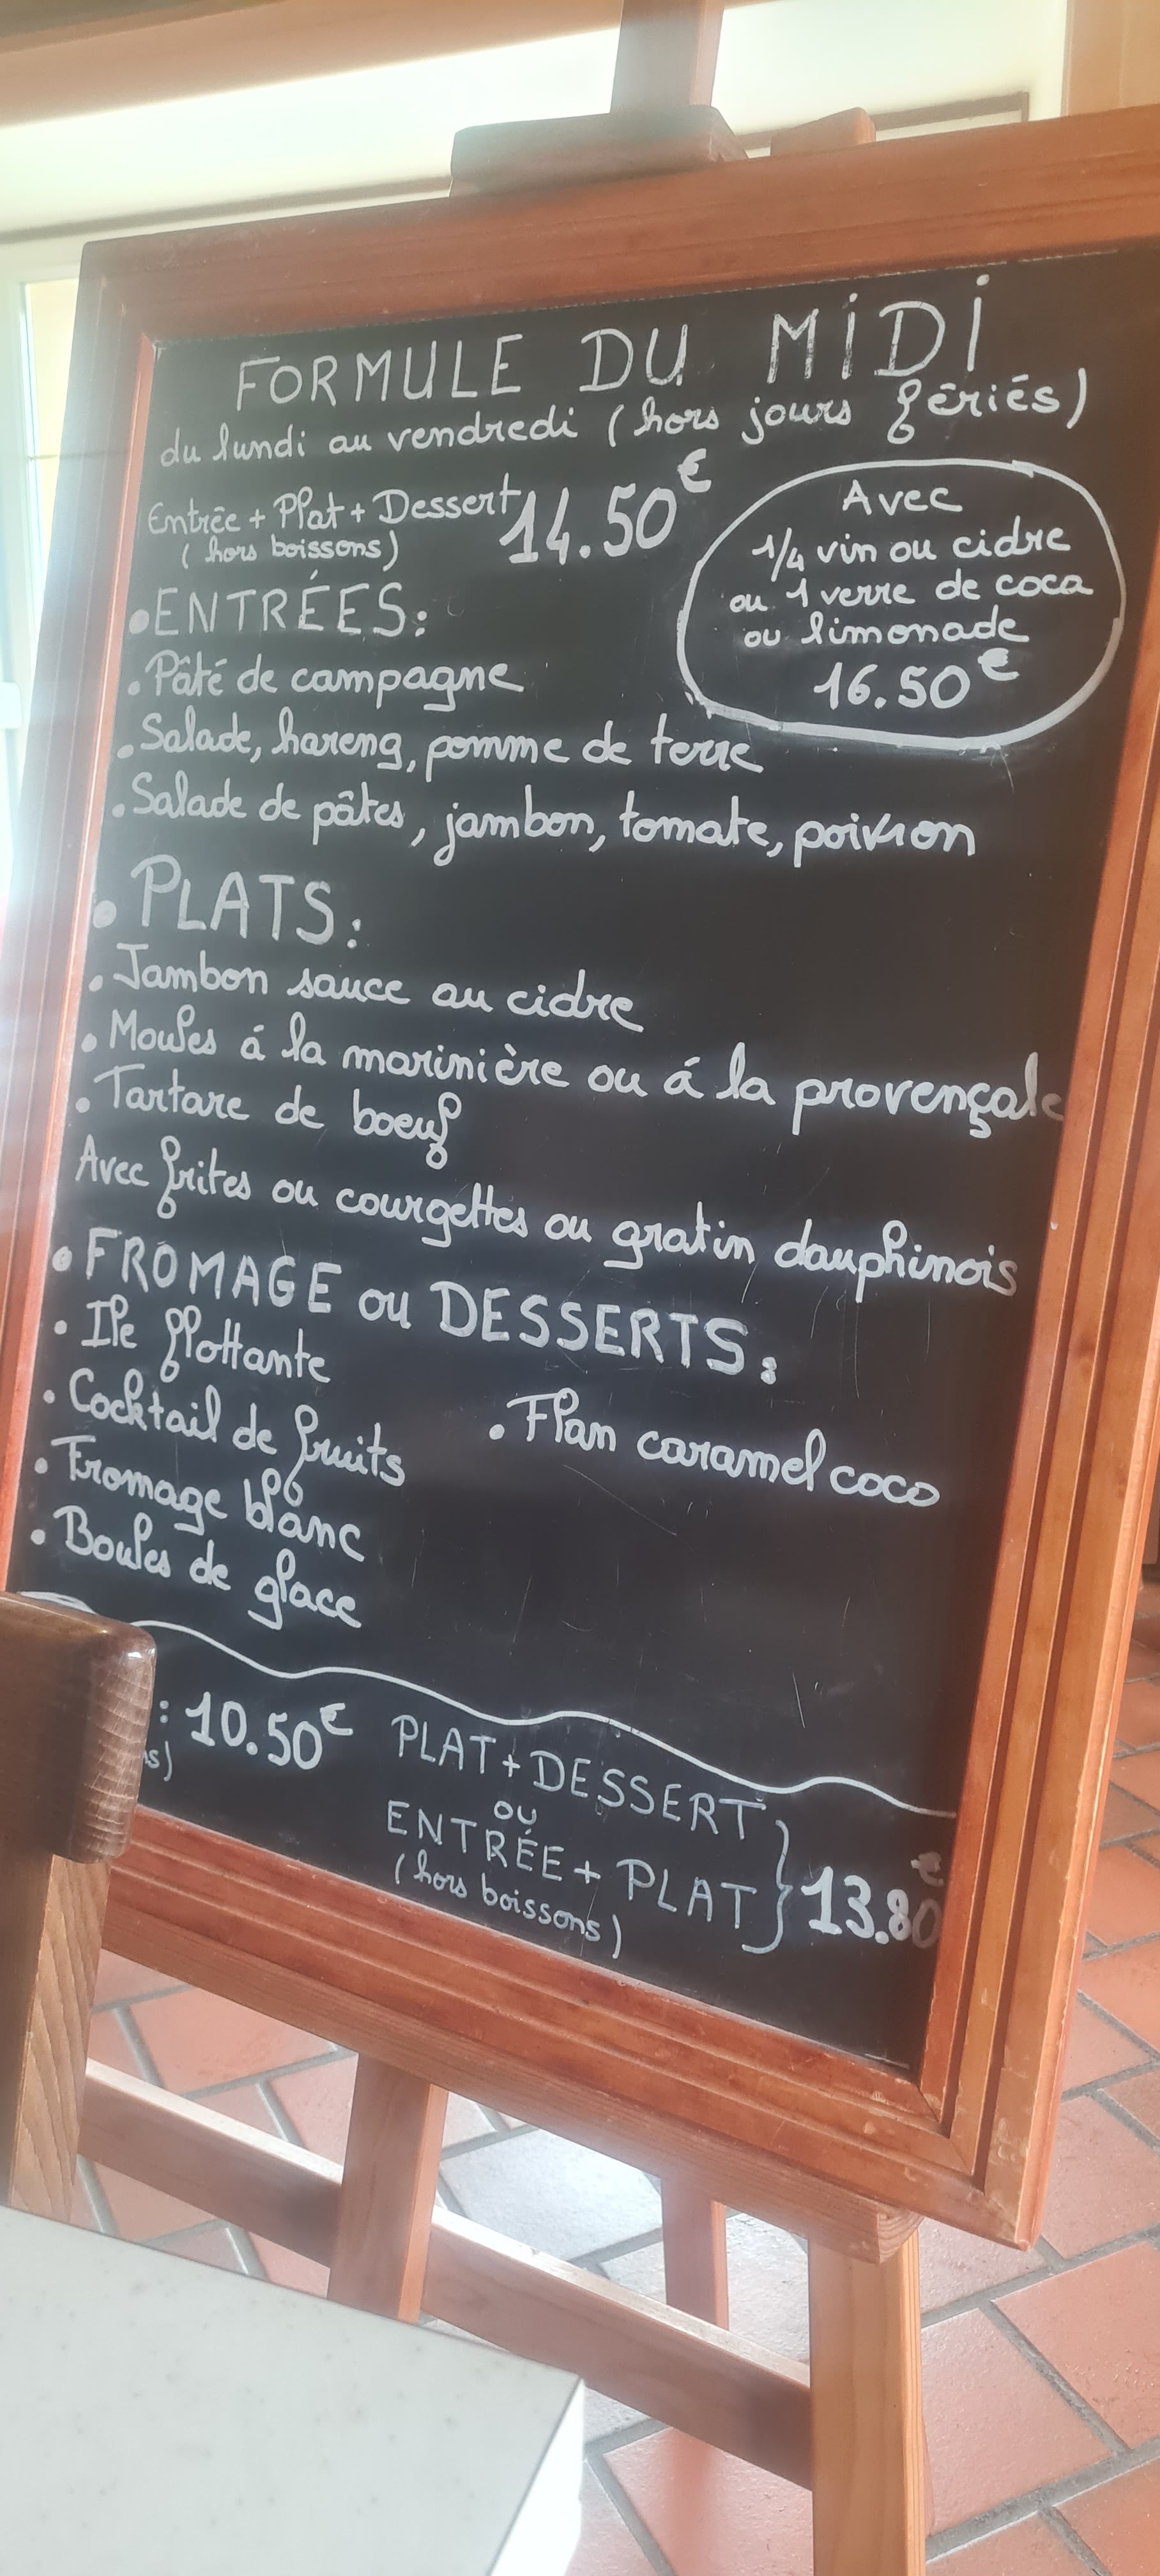 FORMULE DU MiDi
du lundi au vendredi (hors jours fériés)
Entrée + Plat + Dessert 14.50€
(hors boissons)
Avec
1/4 vin ou cidre
ou 1 verre de coca
ou limonade
16.50€
• ENTRÉES:
. Pâté de campagne
. Salade, hareng, pomme de terre
. Salade de pâtes, jambon, tomate, poivron
• PLATS:
. Jambon sauce au cidre
. Moules á la marinière ou á la provençale
. Tartare de boeuf
Avec frites ou courgettes ou gratin dauphinois
• FROMAGE ou DESSERTS:
. Ile flottante
. Cocktail de fruits
. Fromage blanc
. Boules de glace
. Flan caramel coco
: 10.50€
s)
PLAT + DESSERT
ou
ENTRÉE + PLAT } 13.80€
(hors boissons)